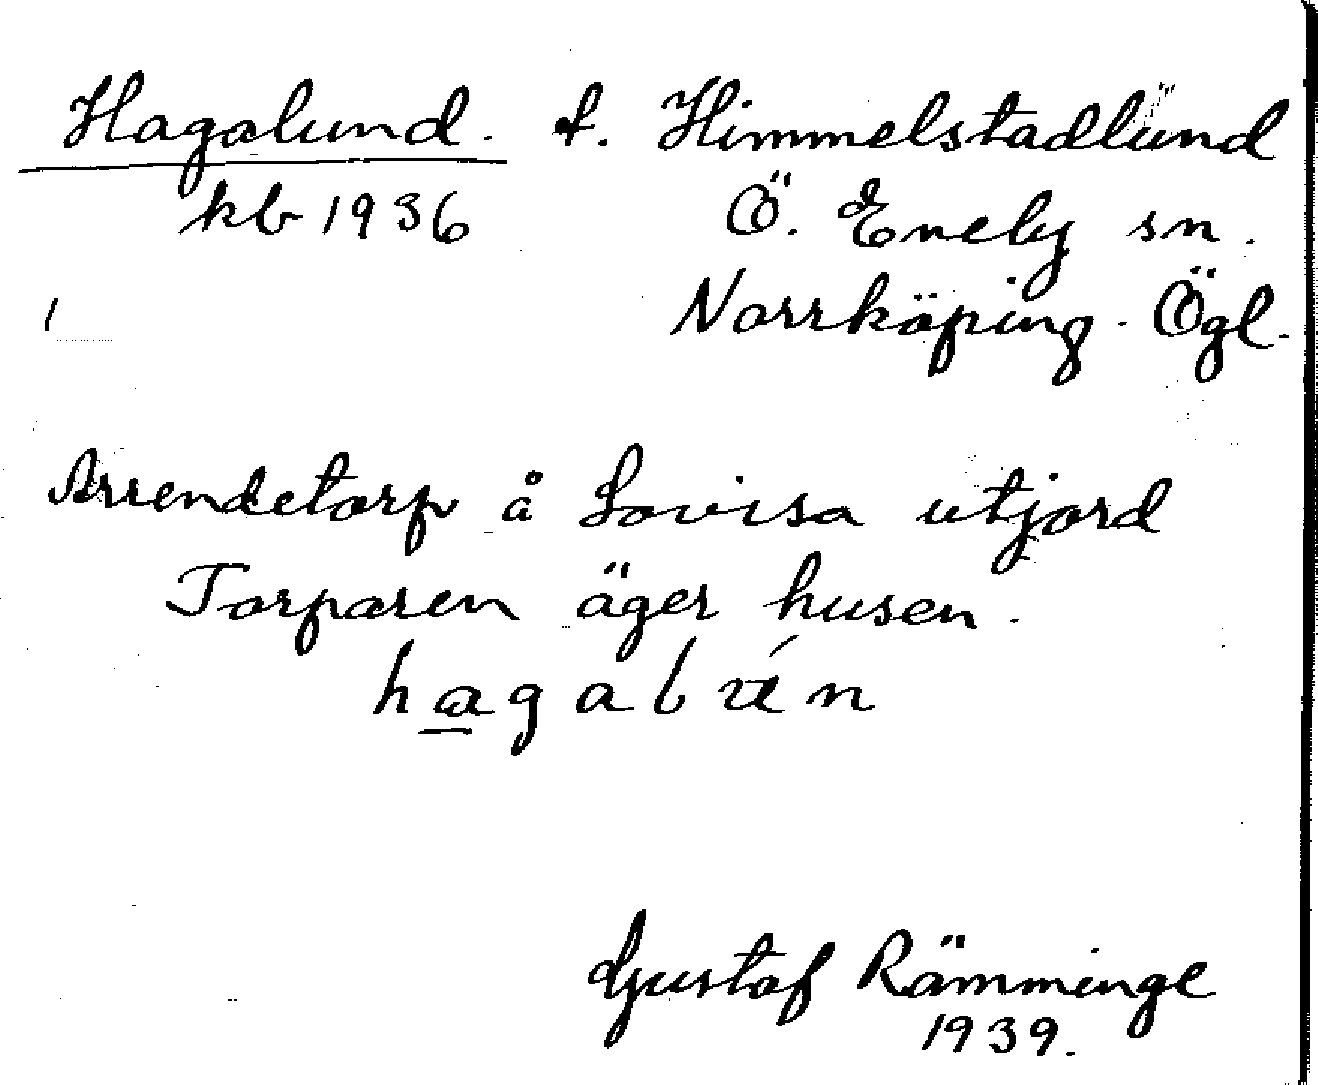 Hagalund. t. Himmelstadlund
kb 1936 Ö. Eneby sn.
Norrköping. Ögl.
Arrendetorp å Lovisa utjord
Torparen äger husen.
Gustaf Rämminge
1939.